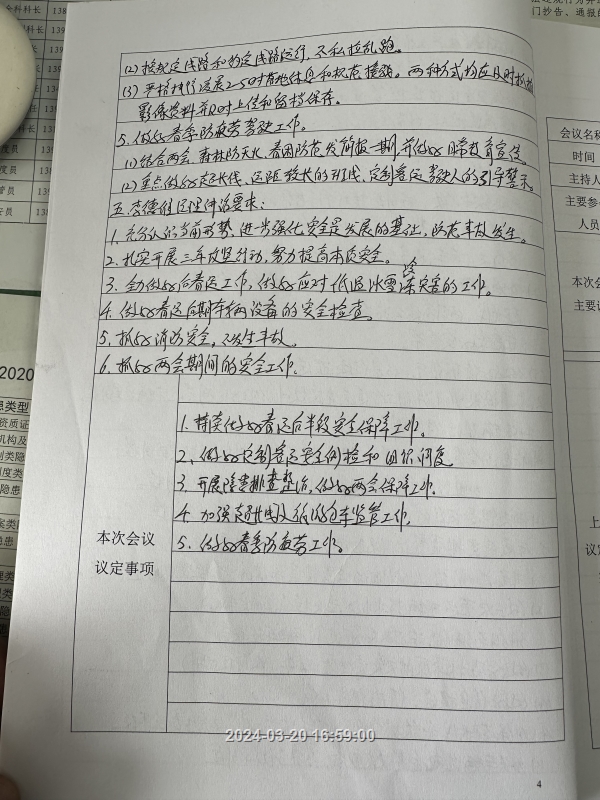 (2) 按规定线路和约定线路运行，不私拉乱跑。
(3) 严格执行凌晨2-5时落地休息和规范接驳。两种方式均应及时抓拍
影像资料并及时上传和留持保存。
5. 做好春季防疲劳驾驶工作。
(1) 结合两会、森林防灭火、春困防范发简报一期，并做好日常教育宣传。
(2) 重点做好超长线、运距较长的班线、定制客运驾驶人的引导警示。
五、李德伟经理作的要求：
1. 充分认识当前形势，进步强化安全是发展的基础，防范事故发生。
2. 扎实开展三年攻坚行动，努力提高本质安全。
3. 全力做好春运工作，做好应对低温冰雪冷冻灾害的工作。
4. 做好春运后期车辆设备的安全检查。
5. 抓好消防安全，不发生事故。
6. 抓好两会期间的安全工作。
本次会议
议定事项
1. 持续做好春运后半段安全保障工作。
2. 做好定制客运安全例检和组织调度
3. 开展隐患排查整治，做好两会保障工作。
4. 加强超长线及旅游包车监管工作。
5. 做好春季防疲劳工作。
4
2024-03-20 16:59:00
全科科长
科长
科长
度员
管员
2020
患类型
资质证
机构及
会议名称
时间
主持人
主要参
人员
本次会
主要议
上
议定
门抄告、通报的